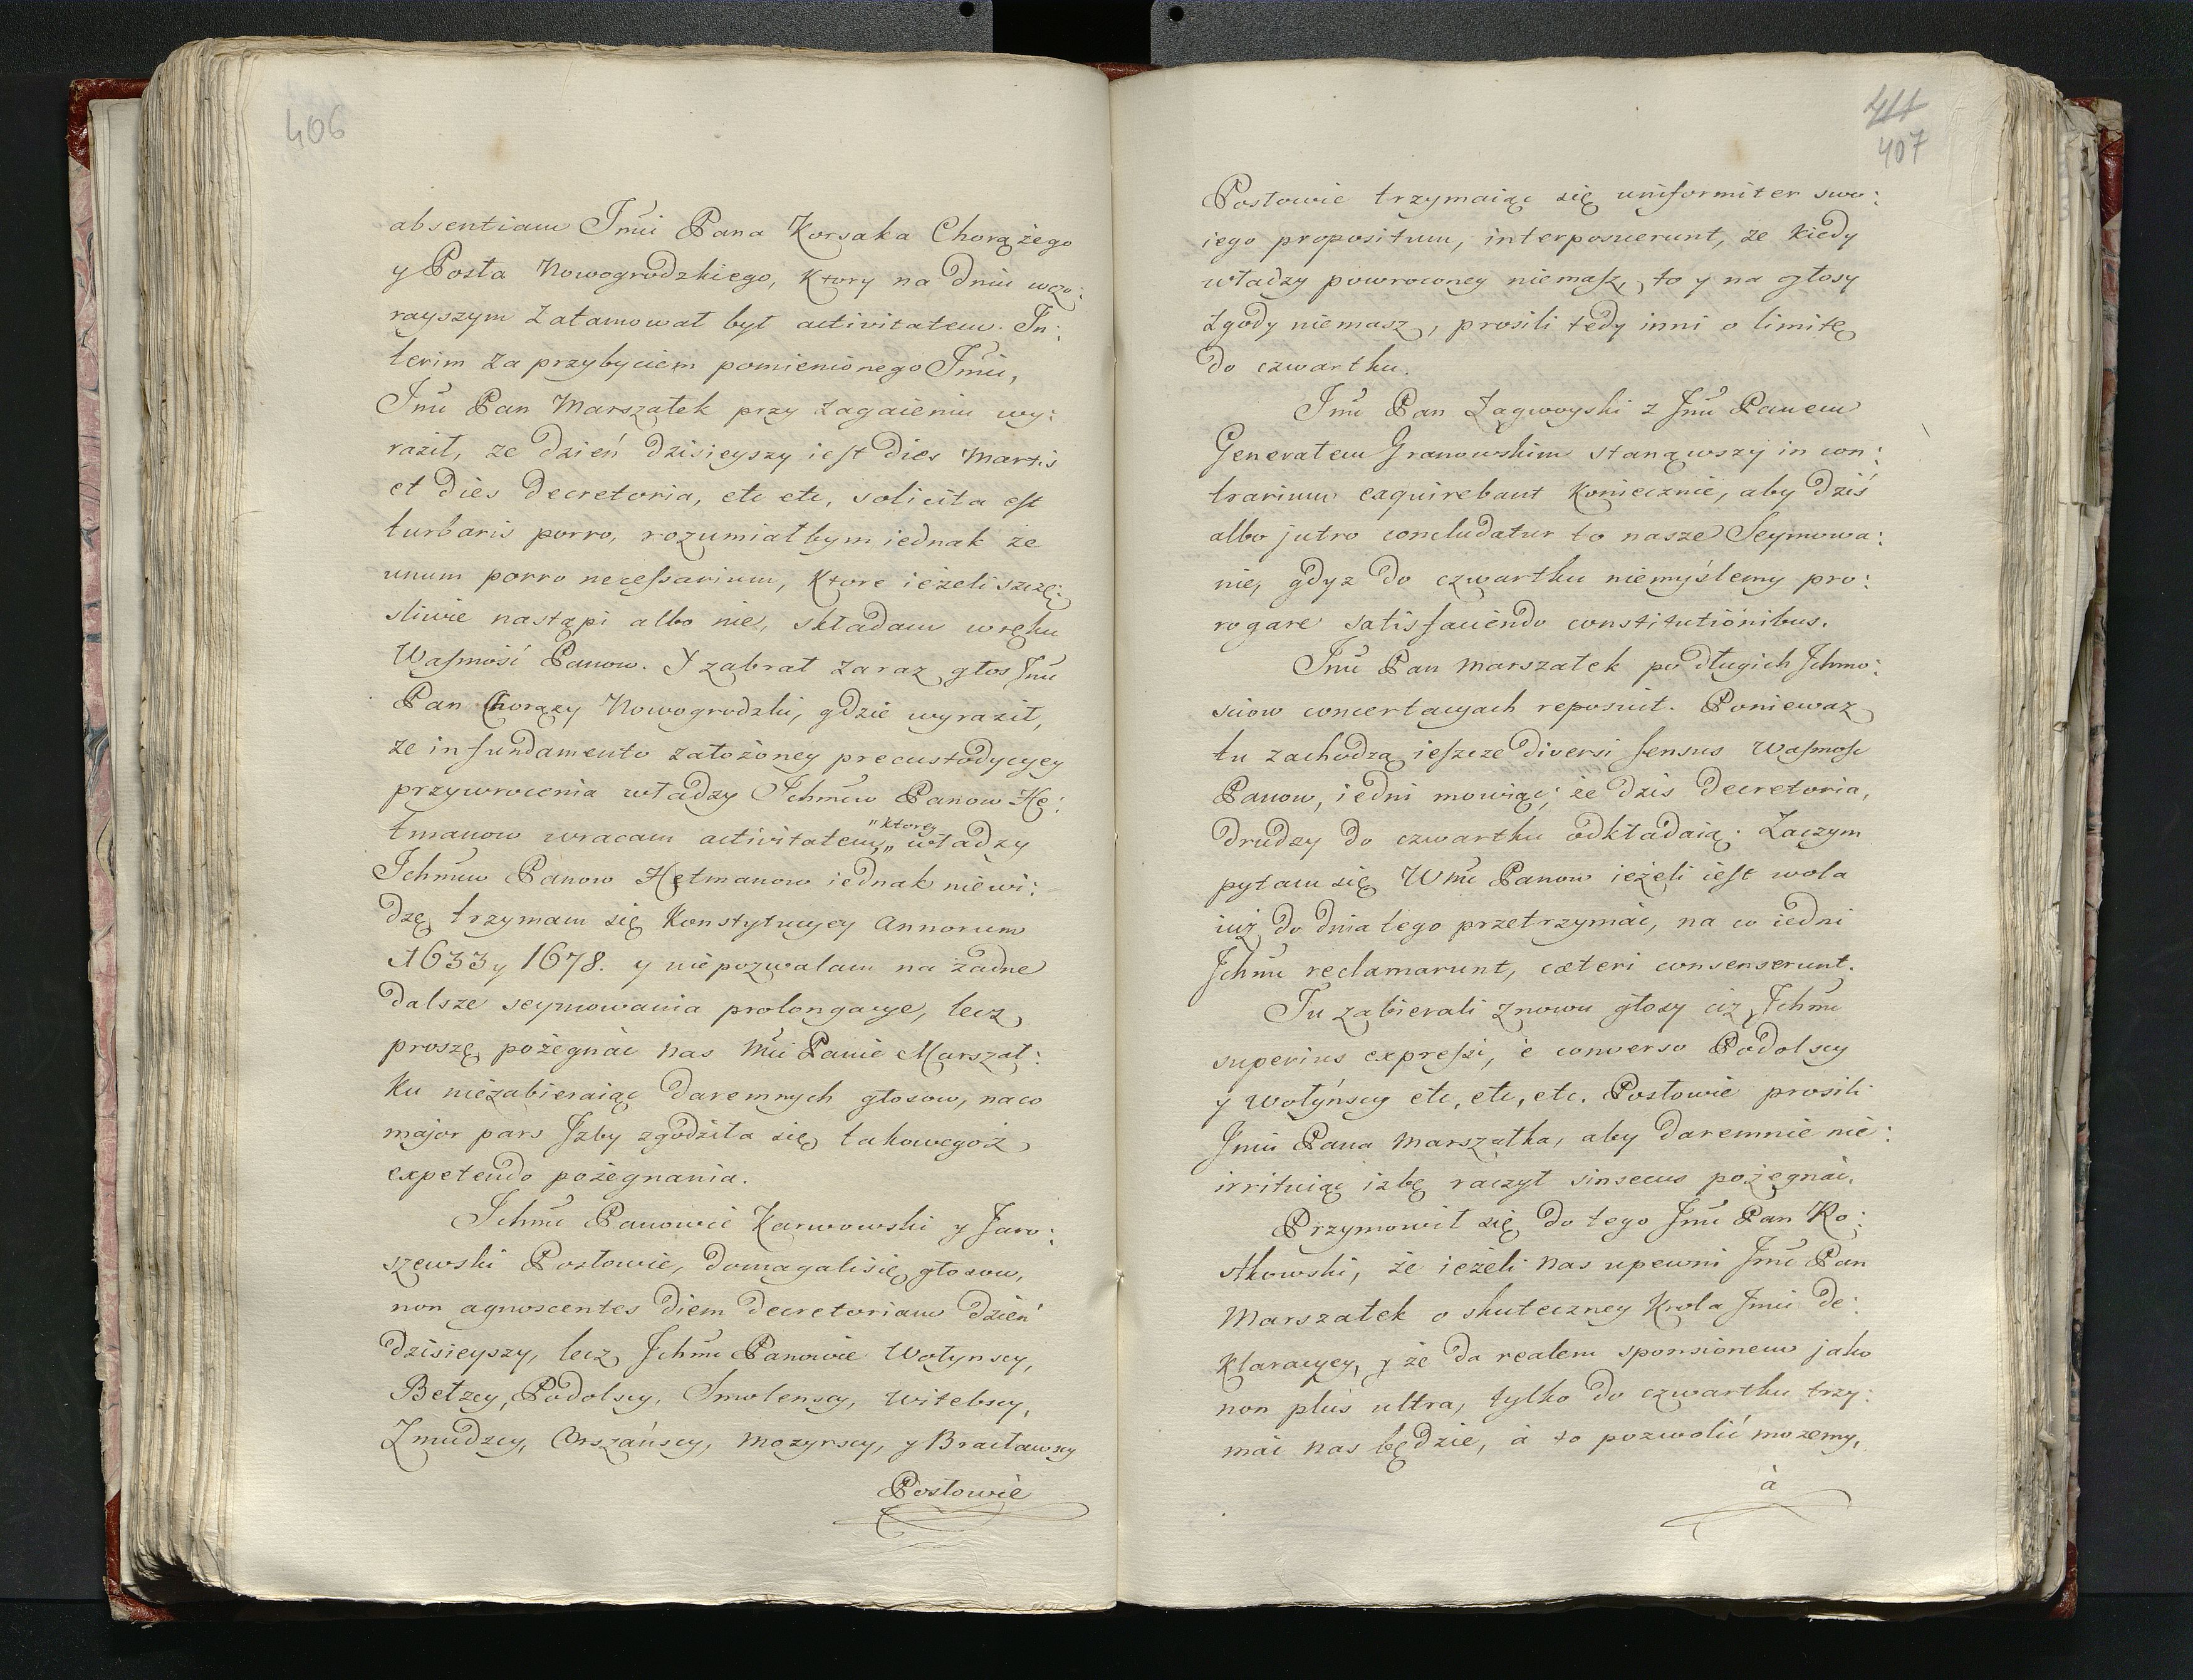 406
absentiam Jmci Pana Korsaka Chorążego
y Posła Nowogrodzkiego, ktory na dniu wczo:
rayszym zatamował był activitatem. In:
terim za przybyciem pomienionego Jmci,
Jmć Pan Marszałek przy zagaieniu wy:
raził, ze dzień dzisieyszy iest dies Martis
et dies decretoria, etc etc, solicita est
turbaris porro, rozumiałbym iednak że
unum porro necessarium, ktore ieżeli szczę:
sliwie nastąpi albo nie, składam wręku
Wasmość Panow. Y zabrał zaraz głos Jmć
Pan Chorązy Nowogrodzki, gdzie wyraził,
że in fundamento założoney precustodycyey
przywrocenia władzy Ichmćiw Panow He:
tmanow wracam activitatem, „ktorey„ władzy
Ichmćiw Panow Hetmanow iednak niewi:
dzę trzymam się Konstytucyey Annorum
1633 y 1678. y niepozwalam na żadne
dalsze seymowania prolongacye, lecz
proszę pożegnać nas Mci Panie Marszał:
ku niezabieraiąc daremnych głosow, na co
major pars Jzby zgodziła się takowegoż
expetendo pożegnania.
Ichmć Panowie Karwowski y Jaro:
szewski Posłowie, domagali się głosow,
non agnoscentes diem decretoriam dzień
dzisieyszy, lecz Jchmć Panowie Wołynscy,
Bełzcy, Podolscy, Smolenscy, Witebscy,
Zmudzcy, Orszańscy, Mozyrscy, y Bracławscy
Posłowie
411
407
Posłowie trzymaiąc się uniformiter swo:
iego propositum, interposuerunt, że kiedy
władzy powroconey niemasz, to y na głosy
zgody niemasz, prosili tedy inni o limitę
do czwartku.
Jmć Pan Zagwoyski z Jmć Panem
Generałem Granowskim stanąwszy in con:
trarium exquirebant koniecznie, aby dziś
albo jutro concludatur to nasze Seymowa:
nie, gdyz do czwartku niemyślemy pro:
rogare satisfaciendo constitutionibus.
Jmć Pan Marszałek po długich Jchmo:
sciow concertacyach reposuit. Poniewaz
tu zachodzą ieszcze diversi sensus Wasmość
Panow, iedni mowiąc; że dzis decretoria,
drudzy do czwartku odkładaią. Zaczym
pytam się Wmć Panow ieżeli iest wola
iuż do dnia tego przetrzymać, na co iedni
Jchmć reclamarunt, cæteri consenserunt.
Tu zabierali znowu głosy ciż Jchmć
superius expressi, è converso Podolscy
y Wołyńscy etc, etc, etc. Posłowie prosili
Jmci Pana Marszałka, aby daremnie nie:
irrituiąc izbę raczył sinsecus pożegnać.
Przymowił się do tego Jmć Pan Ro:
stkowski, że ieżeli nas upewni Jmć Pan
Marszałek o skuteczney Krola Jmci de:
klaracyey, y że da realem sponsionem jako
non plus ultra, tylko do czwartku trzy:
mać nas będzie, à to pozwolić możemy,
à